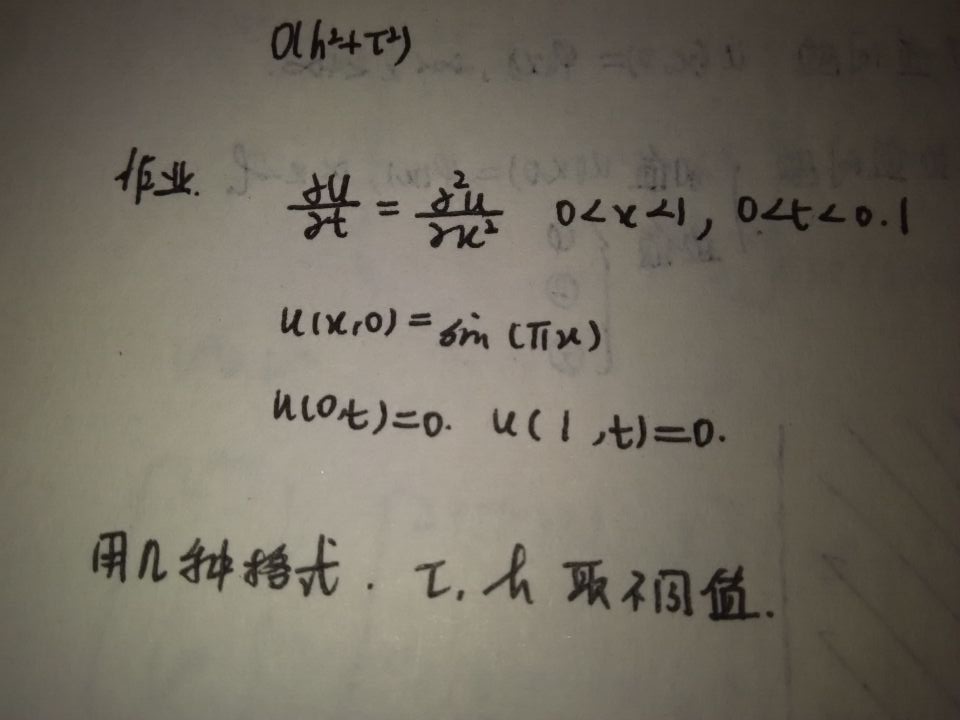 O(h²+τ²)
作业. ∂u/∂t = ∂²u/∂x² 0<x<1, 0<t<0.1
u(x,0)=sin(πx)
u(0,t)=0. u(1,t)=0.
用几种格式. τ, h 取不同值.